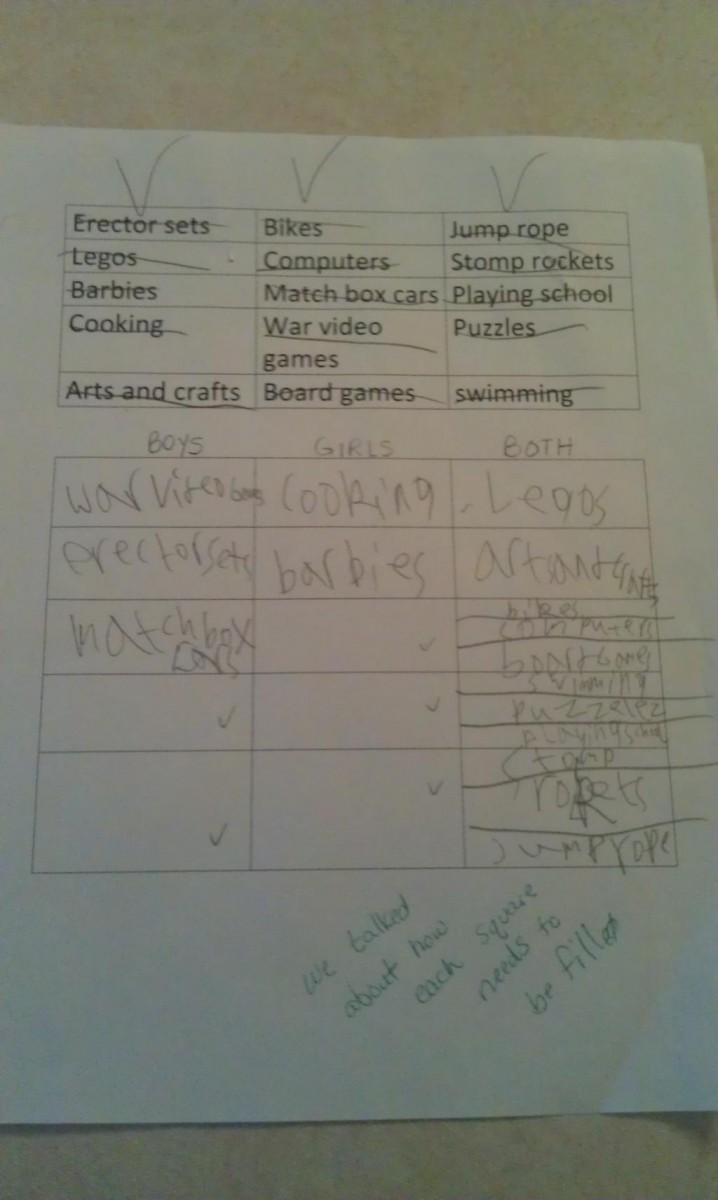 Erector sets Bikes Jump rope
Legos Computers Stomp rockets
Barbies Match box cars Playing school
Cooking War video Puzzles
games
Arts and crafts Board games swimming
BOYS GIRLS BOTH
cooking Legos
erectorsets barbies
bikes
matchbox computers
cars boardgames
swimming
puzzelez
playingschool
stomp
rokets
jumprope
we talked
about how
each square
needs to
be filled